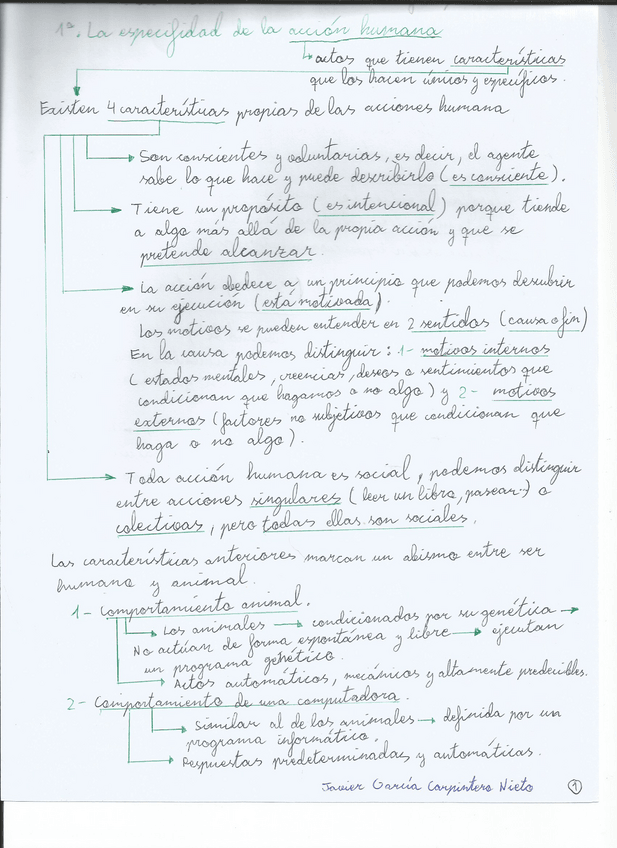 1º. La especifidad de la acción humana
↳ actos que tienen características
que los hacen únicos y específicos.
Existen 4 características propias de las acciones humana
→ Son conscientes y voluntarias, es decir, el agente
sabe lo que hace y puede describirlo (es consciente).
→ Tiene un propósito (es intencional) porque tiende
a algo más allá de la propia acción y que se
pretende alcanzar.
→ La acción obedece a un principio que podemos descubrir
en su ejecución (está motivada).
Los motivos se pueden entender en 2 sentidos (causa o fin)
En la causa podemos distinguir: 1- motivos internos
(estados mentales, creencias, deseos o sentimientos que
condicionan que hagamos o no algo) y 2- motivos
externos (factores no subjetivos que condicionan que
haga o no algo).
→ Toda acción humana es social, podemos distinguir
entre acciones singulares (leer un libro, pasear..) o
colectivas, pero todas ellas son sociales.
Las características anteriores marcan un abismo entre ser
humano y animal.
1- Comportamiento animal.
→ Los animales → condicionados por su genética →
No actúan de forma espontánea y libre → ejecutan
un programa genético.
→ Actos automáticos, mecánicos y altamente predecibles.
2- Comportamiento de una computadora.
→ Similar al de los animales → definida por un
programa informático.
→ Respuestas predeterminadas y automáticas.
Javier García Carpintero Nieto 1